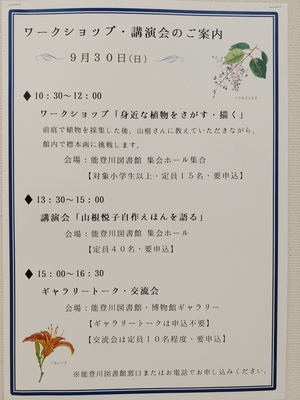 ワークショップ・講演会のご案内
9月30日(日)
◆10：30～12：00
ワークショップ「身近な植物をさがす・描く」
前庭で植物を採集した後、山根さんに教えていただきながら、
館内で標本画に挑戦します。
会場：能登川図書館 集会ホール集合
【対象小学生以上・定員15名・要申込】
◆13：30～15：00
講演会「山根悦子自作えほんを語る」
会場：能登川図書館 集会ホール
【定員40名・要申込】
◆15：00～16：30
ギャラリートーク・交流会
会場：能登川図書館・博物館ギャラリー
【ギャラリートークは申込不要】
【交流会は定員10名程度・要申込】
※能登川図書館窓口またはお電話でお申し込みください。